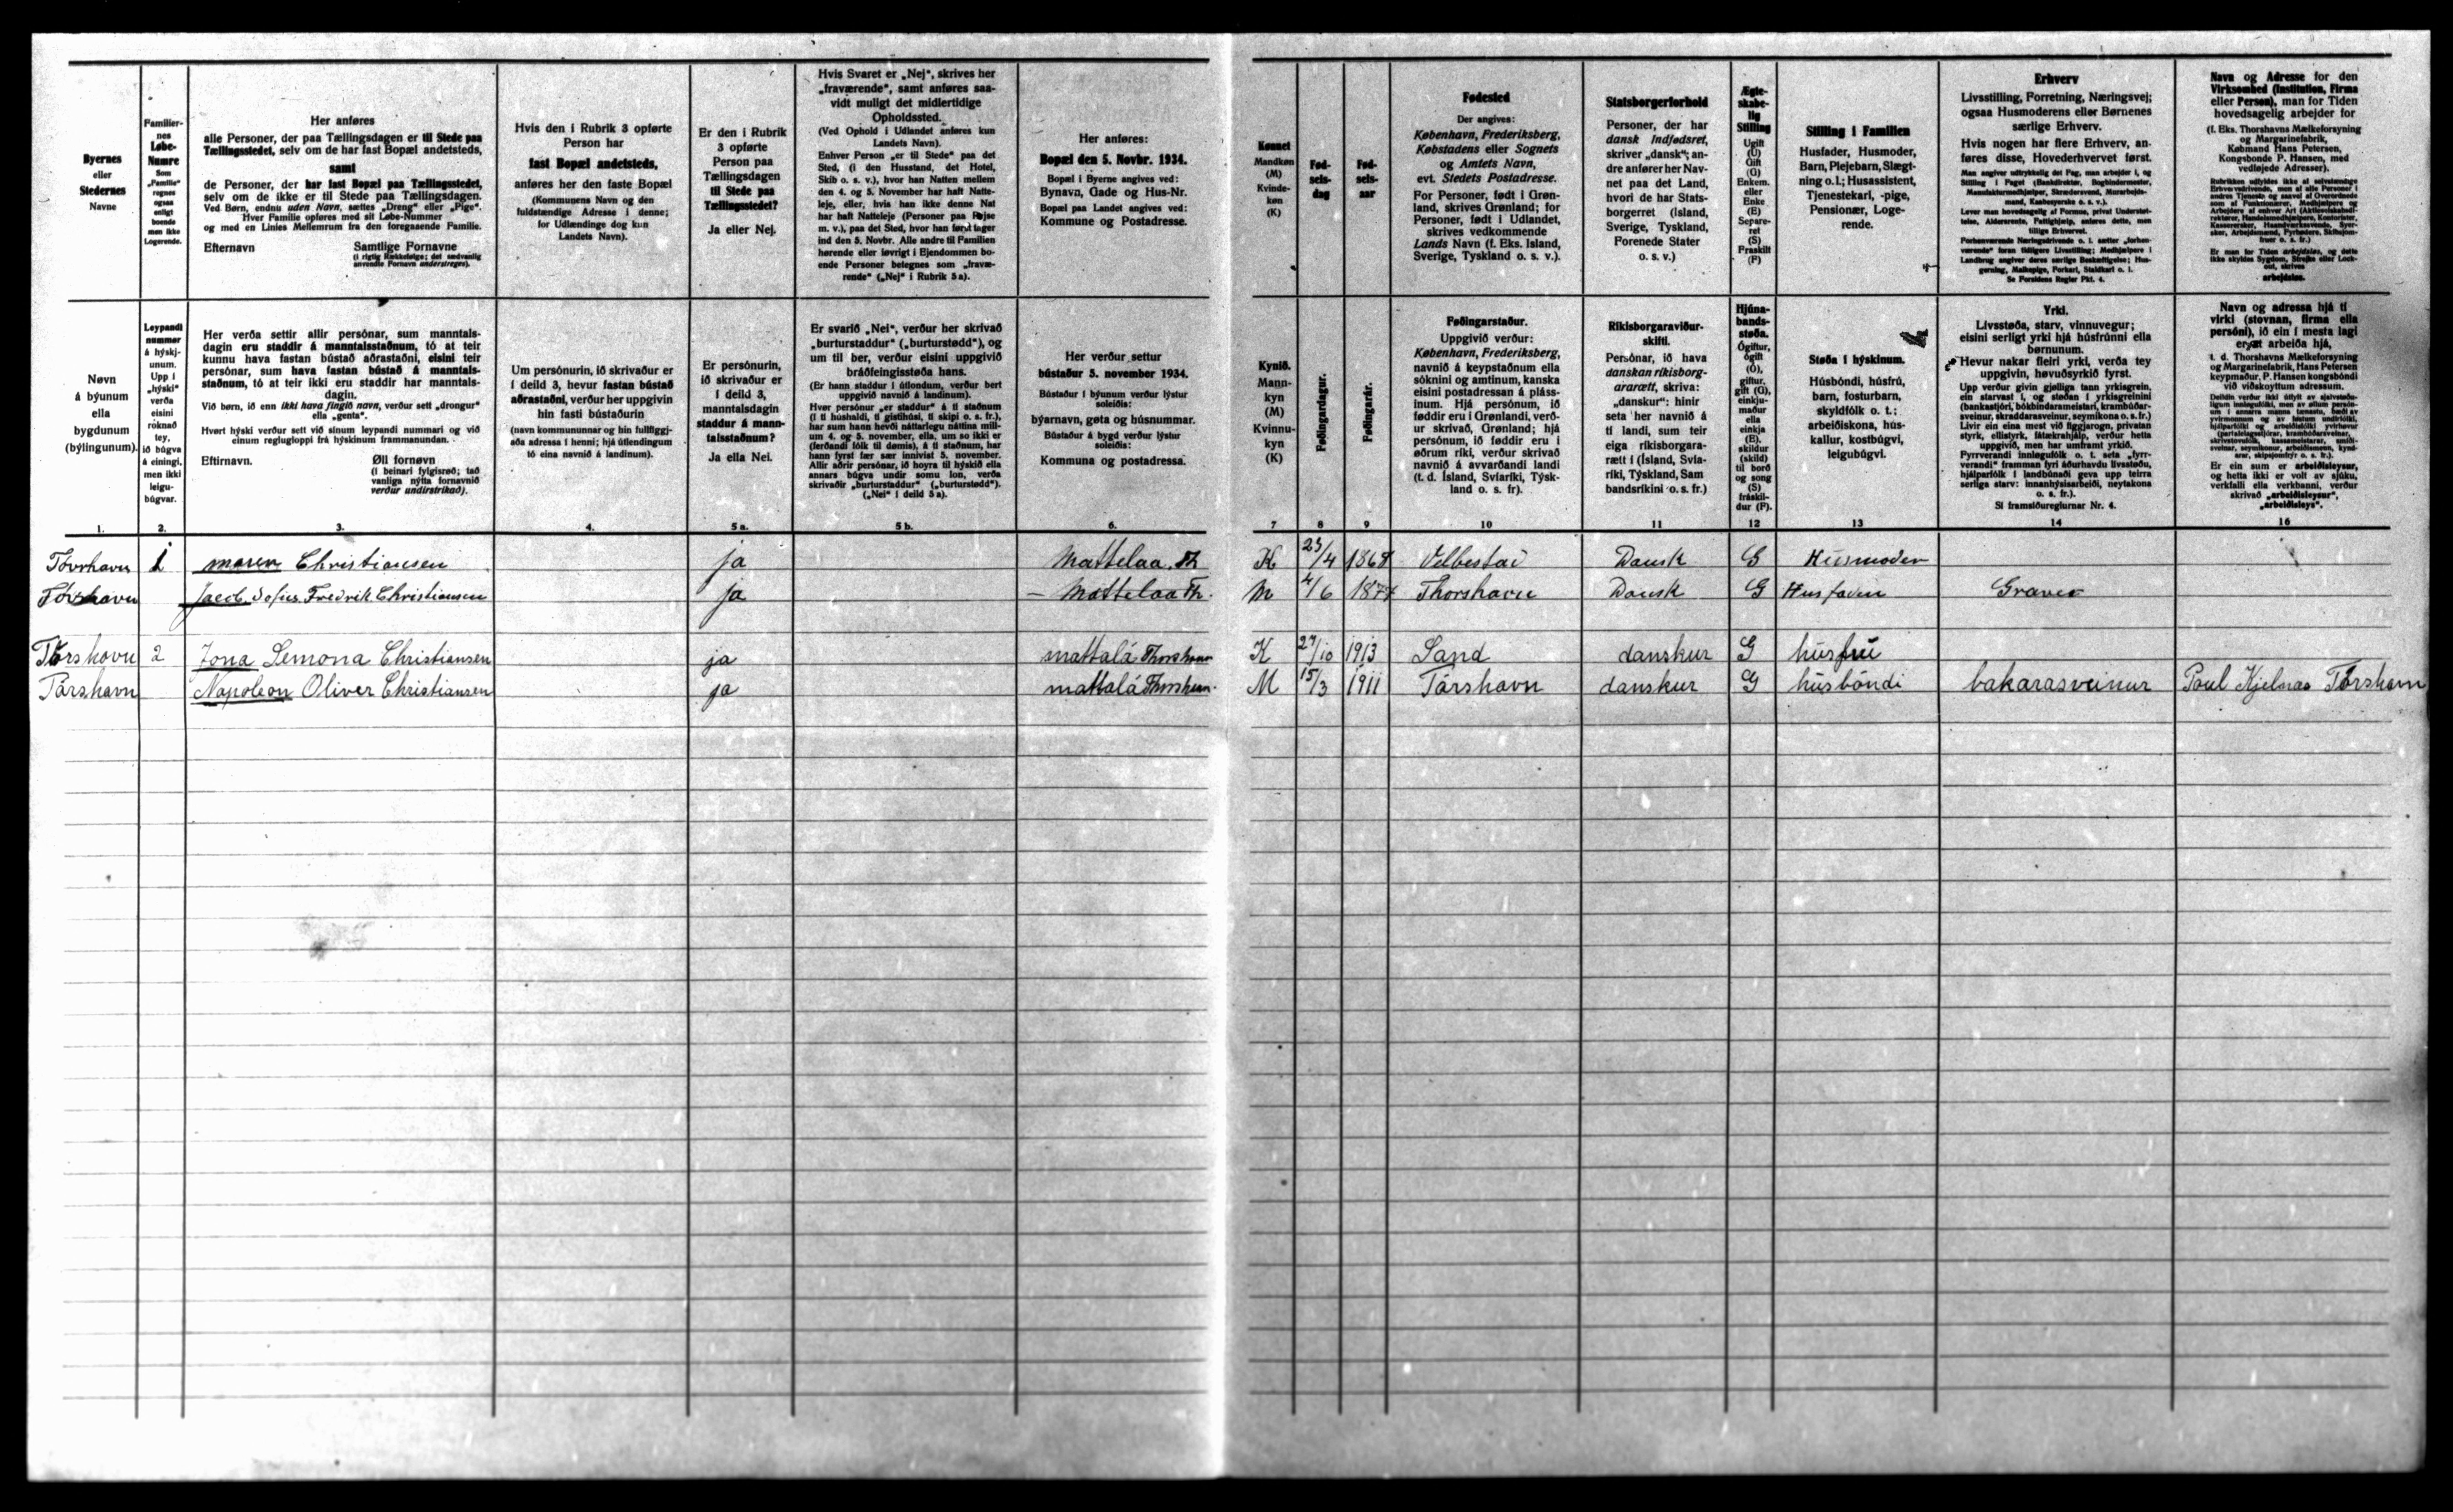 Byernes
eller
Stedernes
Navne
Familier-
nes
Løbe-
Numre
Som
„Familie“
regnes
ogsaa
enligt
boende
men ikke
Logerende.
Her anføres
alle Personer, der paa Tællingsdagen er til Stede paa
Tællingsstedet, selv om de har fast Bopæl andetsteds,
samt
de Personer, der har fast Bopæl paa Tællingsstedet,
selv om de ikke er til Stede paa Tællingsdagen.
Ved Børn, endnu uden Navn, sættes „Dreng“ eller „Pige“.
Hver Familie opføres med sit Løbe-Nummer
og med en Linies Mellemrum fra den foregaaende Familie.
Efternavn Samtlige Fornavne
(i rigtig Rækkefølge; det sædvanlig
anvendte Fornavn understreges).
Hvis den i Rubrik 3 opførte
Person har
fast Bopæl andetsteds,
anføres her den faste Bopæl
(Kommunens Navn og den
fuldstændige Adresse i denne;
for Udlændinge dog kun
Landets Navn).
Er den i Rubrik
3 opførte
Person paa
Tællingsdagen
til Stede paa
Tællingsstedet?
Ja eller Nej.
Hvis Svaret er „Nej“, skrives her
„fraværende“, samt anføres saa-
vidt muligt det midlertidige
Opholdssted.
(Ved Ophold i Udlandet anføres kun
Landets Navn).
Enhver Person „er til Stede“ paa det
Sted, (i den Husstand, det Hotel,
Skib o. s. v.), hvor han Natten mellem
den 4. og 5. November har haft Natte-
leje, eller, hvis han ikke denne Nat
har haft Natteleje (Personer paa Rejse
m. v.), paa det Sted, hvor han først tager
ind den 5. Novbr. Alle andre til Familien
hørende eller iøvrigt i Ejendommen bo-
ende Personer betegnes som „fravæ-
rende“ („Nej“ i Rubrik 5 a).
Her anføres:
Bopæl den 5. Novbr. 1934.
Bopæl i Byerne angives ved:
Bynavn, Gade og Hus-Nr.
Bopæl paa Landet angives ved:
Kommune og Postadresse.
Kønnet
Mandkøn
(M)
Kvinde-
køn
(K)
Fød-
sels-
dag
Fød-
sels-
aar
Fødested
Der angives:
København, Frederiksberg,
Købstadens eller Sognets
og Amtets Navn,
evt. Stedets Postadresse.
For Personer, født i Grøn-
land, skrives Grønland; for
Personer, født i Udlandet,
skrives vedkommende
Lands Navn (f. Eks. Island,
Sverige, Tyskland o. s. v.).
Statsborgerforhold
Personer, der har
dansk Indfødsret,
skriver „dansk“; an-
dre anfører her Nav-
net paa det Land,
hvori de har Stats-
borgerret (Island,
Sverige, Tyskland,
Forenede Stater
o. s. v.)
Ægte-
skabe-
lig
Stilling
Ugift
(U)
Gift
(G)
Enkem.
eller
Enke
(E)
Separe-
ret
(S)
Fraskilt
(F)
Stilling i Familien
Husfader, Husmoder,
Barn, Plejebarn, Slægt-
ning o.l.; Husassistent,
Tjenestekarl, -pige,
Pensionær, Loge-
rende.
Erhverv
Livsstilling, Forretning, Næringsvej;
ogsaa Husmoderens eller Børnenes
særlige Erhverv.
Hvis nogen har flere Erhverv, an-
føres disse, Hovederhvervet først.
Man angiver udtrykkelig det Fag, man arbejder i, og
Stilling i Faget (Bankdirektør, Bogbindermester,
Manufakturmedhjælper, Skræddersvend, Murarbejds-
mand, Kaabesyerske o. s. v.).
Lever man hovedsagelig af Formue, privat Understøt-
telse, Aldersrente, Fattighjælp, anføres dette, men
tillige Erhvervet.
Forhenværende Næringsdrivende o. l. sætter „forhen-
værende“ foran tidligere Livsstilling; Medhjælpere i
Landbrug angiver deres særlige Beskæftigelse; Hus-
gerning, Malkepige, Forkarl, Staldkarl o. l.
Se Forsidens Regler Pkt. 4.
Navn og Adresse for den
Virksomhed (Institution, Firma
eller Person), man for Tiden
hovedsagelig arbejder for
(f. Eks. Thorshavns Mælkeforsyning
og Margarinefabrik,
Købmand Hans Petersen,
Kongsbonde P. Hansen, med
vedføjede Adresser).
Er man for Tiden arbejdsløs, og dette
ikke skyldes Sygdom, Strejke eller Lock-
out, skrives
arbejdsløs.
Nøvn
á býunum
ella
bygdunum
(býlingunum).
Leypandi
nummar
á hýskj-
unum.
Upp í
„hýski“
verða
eisini
roknað
tey,
ið búgva
á einingi,
men ikki
leigu-
búgvar.
Her verða settir allir persónar, sum manntals-
dagin eru staddir á manntalsstaðnum, tó at teir
kunnu hava fastan bústað aðrastaðni, eisini teir
persónar, sum hava fastan bústað á manntals-
staðnum, tó at teir ikki eru staddir har manntals-
dagin.
Við børn, ið enn ikki hava fingið navn, verður sett „drongur“
ella „genta“.
Hvørt hýski verður sett við sínum leypandi nummari og við
einum reglugloppi frá hýskinum frammanundan.
Eftirnavn. Øll fornøvn
(í beinari fylgisrøð; tað
vanliga nýtta fornavnið
verður undirstrikað).
Um persónurin, ið skrivaður er
í deild 3, hevur fastan bústað
aðrastaðni, verður her uppgivin
hin fasti bústaðurin
(navn kommununnar og hin fullfíggj-
aða adressa í henni; hjá útlendingum
tó eina navnið á landinum).
Er persónurin,
ið skrivaður er
í deild 3,
manntalsdagin
staddur á mann-
talsstaðnum?
Ja ella Nei.
Er svarið „Nei“, verður her skrivað
„burturstaddur“ („burturstødd“), og
um til ber, verður eisini uppgivið
bráðfeingisstøða hans.
(Er hann staddur í útlondum, verður bert
uppgivið navnið á landinum).
Hvør persónur „er staddur“ á tí staðnum
(í tí húshaldi, tí gistihúsi, tí skipi o. s. fr.),
har sum hann hevði náttarlegu náttina mill-
um 4. og 5. november, ella, um so ikki er
(ferðandi fólk til dømis), á tí staðnum, har
hann fyrst fær sær innivist 5. november.
Allir aðrir persónar, ið hoyra til hýskið ella
annars búgva undir somu lon, verða
skrivaðir „burturstaddur“ („burturstødd“).
(„Nei“ í deild 5 a).
Her verður settur
bústaður 5. november 1934.
Bústaður í býunum verður lýstur
soleiðis:
býarnavn, gøta og húsnummar.
Bústaður á bygd verður lýstur
soleiðis:
Kommuna og postadressa.
Kynið.
Mann-
kyn
(M)
Kvinnu-
kyn
(K)
Føðingardagur.
Føðingarár.
Føðingarstaður.
Uppgivið verður:
København, Frederiksberg,
navnið á keypstaðnum ella
sóknini og amtinum, kanska
eisini postadressan á pláss-
inum. Hjá persónum, ið
føddir eru í Grønlandi, verð-
ur skrivað, Grønland; hjá
persónum, ið føddir eru í
øðrum ríki, verður skrivað
navnið á avvarðandi landi
(t. d. Ísland, Svíaríki, Týsk-
land o. s. fr).
Ríkisborgaraviður-
skifti.
Persónar, ið hava
danskan ríkisborg-
ararætt, skriva:
„danskur“; hinir
seta her navnið á
tí landi, sum teir
eiga ríkisborgara-
rætt í (Ísland, Svía-
ríki, Týskland, Sam
bandsríkini o. s. fr.)
Hjúna-
bands-
støða.
Ógiftur,
ógift
(Ó),
giftur,
gift (G),
einkju-
maður
ella
einkja
(E).
skildur
(skild)
til borð
og song
(S)
fráskil-
dur (F).
Støða í hýskinum.
Húsbóndi, húsfrú,
barn, fosturbarn,
skyldfólk o. t.;
arbeiðiskona, hús-
kallur, kostbúgvi,
leigubúgvi.
Yrki.
Livsstøða, starv, vinnuvegur;
eisini serligt yrki hjá húsfrúnni ella
børnunum.
Hevur nakar fleiri yrki, verða tey
uppgivin, høvuðsyrkið fyrst.
Upp verður givin gjølliga tann yrkisgrein,
ein starvast í, og støðan í yrkisgreinini
(bankastjóri, bókbindarameistari, krambúðar-
sveinur, skraddarasveinur, seymikona o. s. fr.)
Livir ein eina mest við fíggjarogn, privatan
styrk, ellistyrk, fátækrahjálp, verður hetta
uppgivið, men har umframt yrkið.
Fyrrverandi innløgufólk o. t. seta „fyrr-
verandi“ framman fyri áðurhavdu livsstøðu,
hjálparfólk í landbúnaði geva upp teirra
serliga starv: innanhýsisarbeiði, neytakona
o. s. fr.).
Sí framsíðureglurnar Nr. 4.
Navn og adressa hjá tí
virki (stovnan, firma ella
persóni), ið ein í mesta lagi
arbeiða hjá,
t. d. Thorshavns Mælkeforsyning
og Margarinefabrik, Hans Petersen
keypmaður, P. Hansen kongsbóndi
við viðskoyttum adressum.
Er ein sum er arbeiðisleysur,
og hetta ikki er volt av sjúku,
verkfalli ella verkbanni, verður
skrivað „arbeiðisleysur“,
„arbeiðisleys“.
1. 2. 3. 4. 5 a. 5 b. 6. 7 8 9 10 11 12 13 14 16
Torshavn 1 maren Christiansen ja Mattelaa. Th K 23/4 1868 Velbestad Dansk G Husmoder
Torshavn Jacob Sofus Fredrik Christiansen ja – Mattelaa Th. M 4/6 1874 Thorshavn Dansk G Husfader Graver
Tórshavn 2 Jona Semona Christiansen ja mattalá Thorshavn K 27/10 1913 Sand danskur G húsfrú
Tórshavn Napoleon Oliver Christiansen ja mattalá Thorshavn. M 15/3 1911 Tórshavn danskur G húsbóndi bakarasveinur Poul Kjelnæs Tórshavn